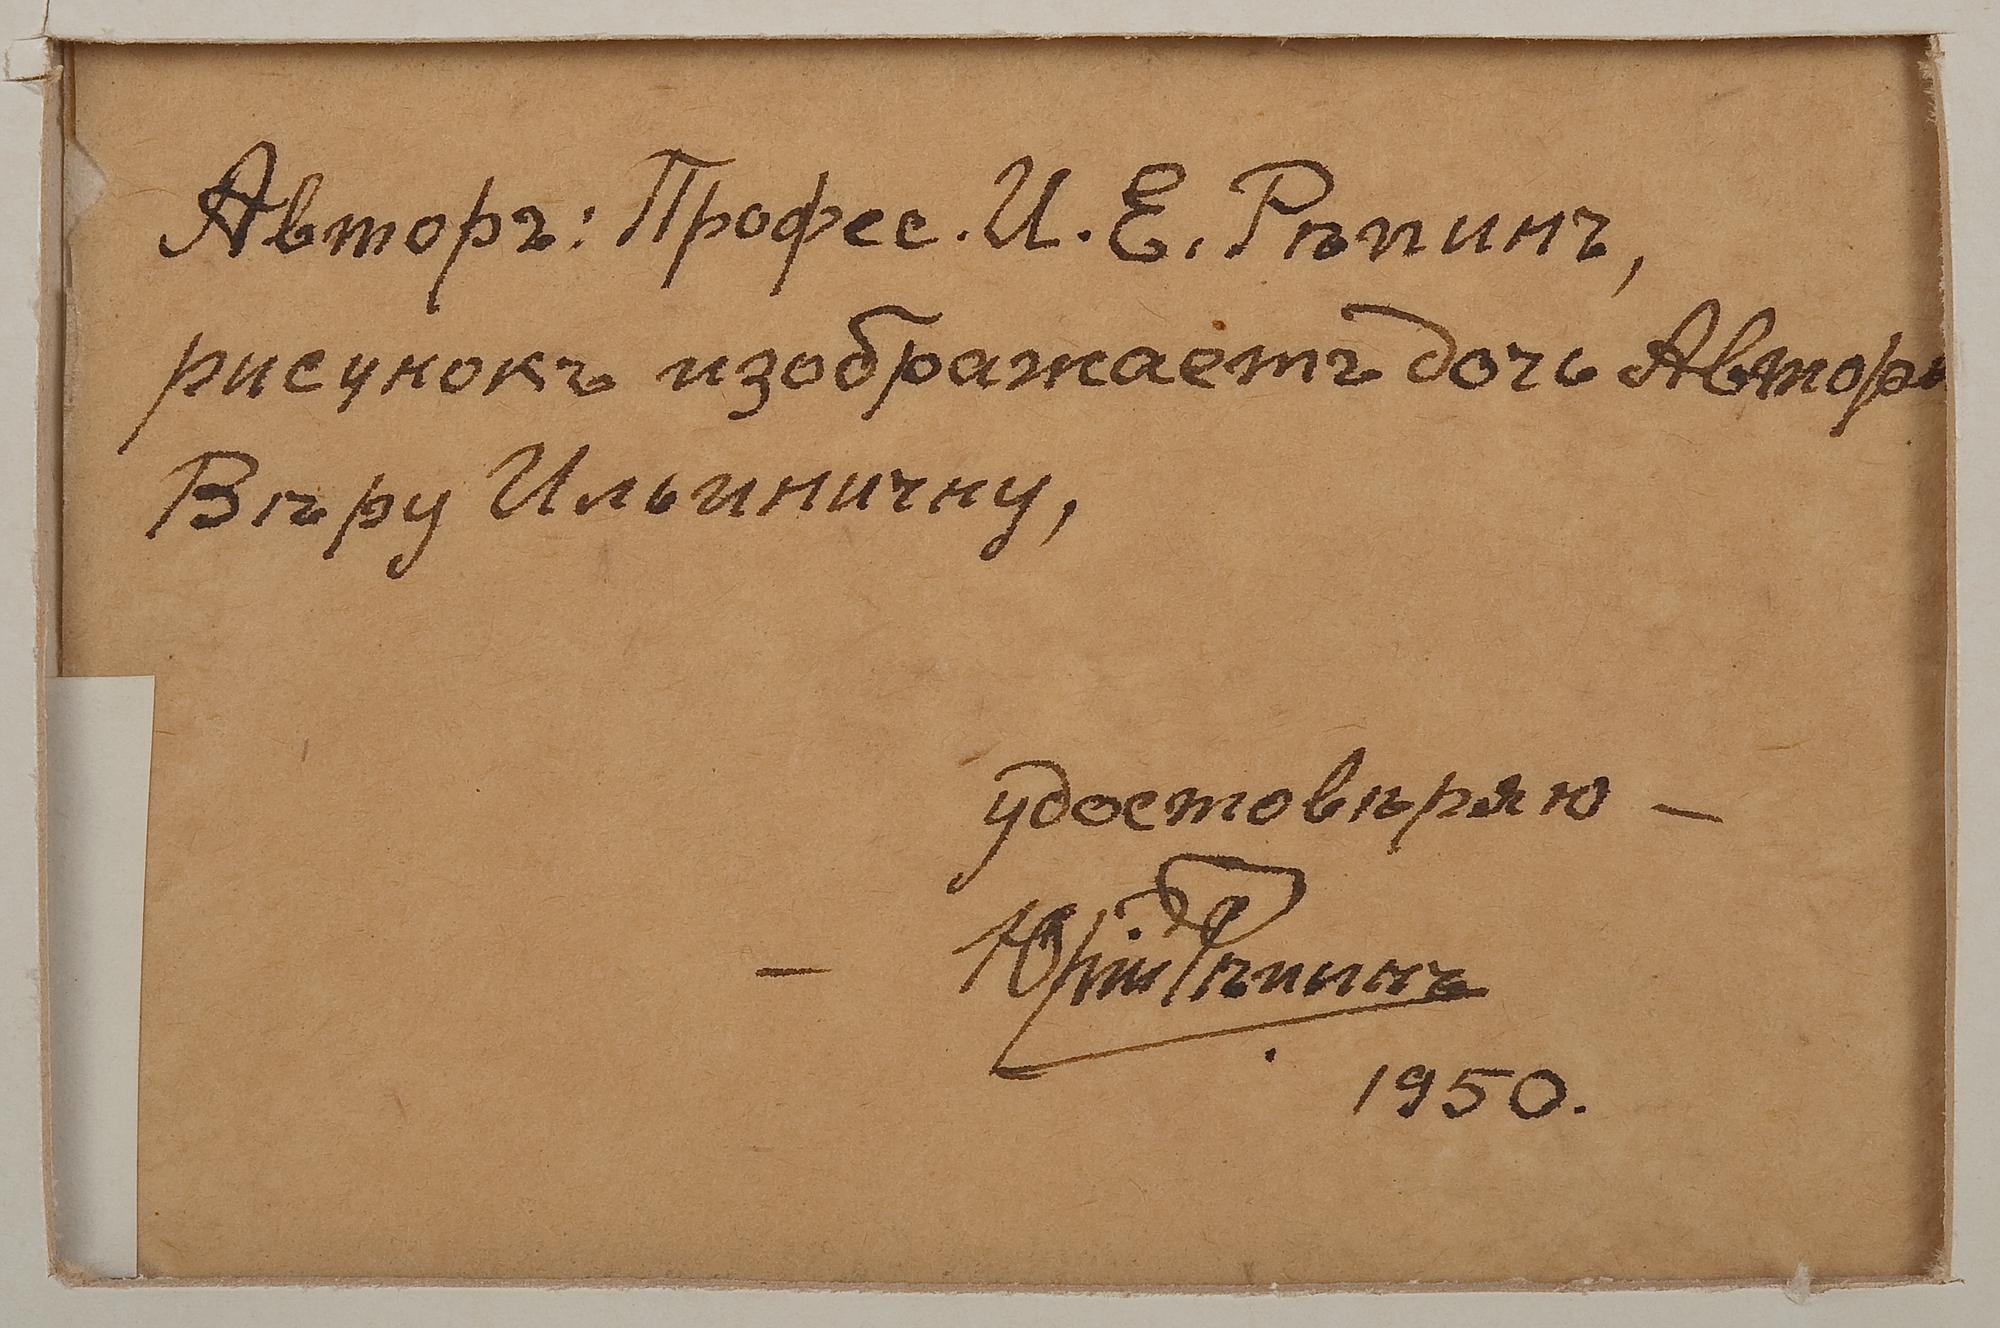 Авторъ: Професс. И. Е. Рѣпинъ,
рисунокъ изображаетъ дочь Автора
Вѣру Ильиничну,
удостовѣряю —
— Юрій Рѣпинъ
1950.